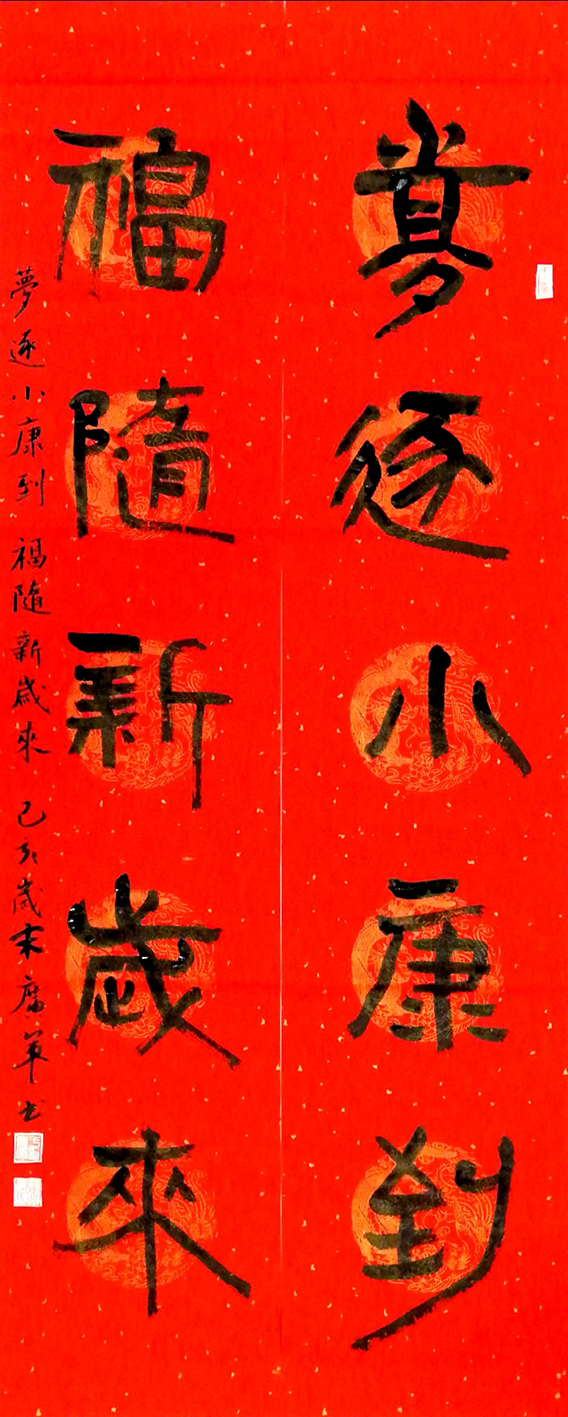 夢逐小康到
福隨新歲來
夢逐小康到 福隨新歲來 己亥歲末腐草书